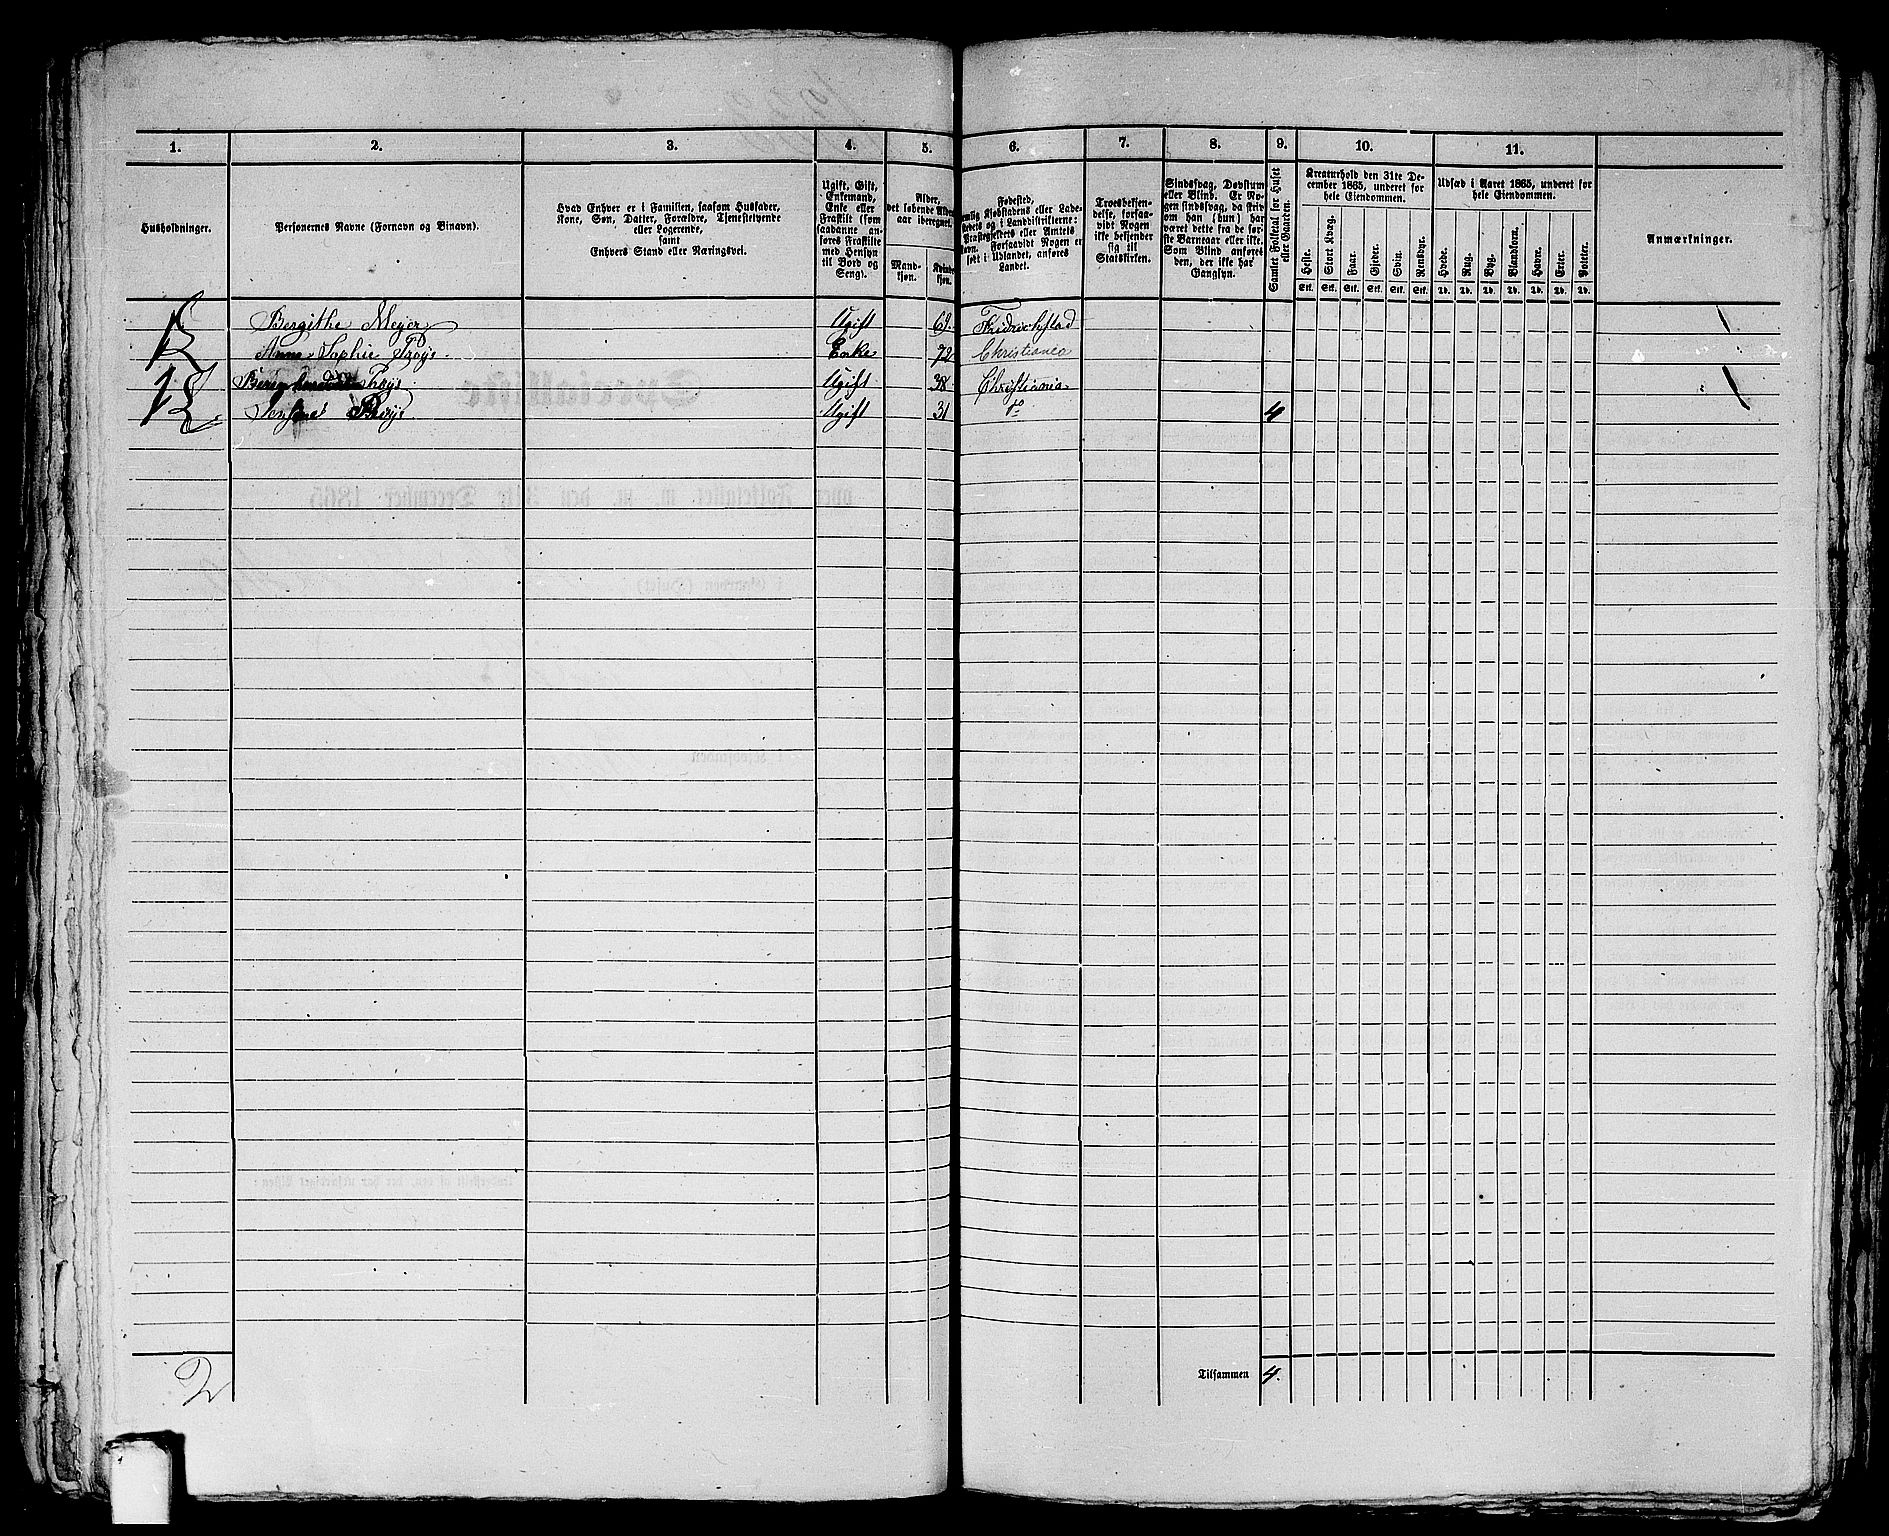 1. 2. 3. 4. 5. 6. 7. 8. 9. 10. 11.
Husholdninger.
Personernes Navne (Fornavn og Binavn).
Hvad Enhver er i Familien, saasom Husfader,
Kone, Søn, Datter, Forældre, Tjenestetyende
eller Logerende,
samt
Enhvers Stand eller Næringsvei.
Ugift, Gift,
Enkemand,
Enke eller
Fraskilt (som
saadanne an-
føres Fraskilte
med Hensyn
til Bord og
Seng).
Alder,
det løbende Alders-
aar iberegnet.
Mand-
kjøn.
Kvinde-
kjøn.
Fødested,
nemlig Kjøbstadens eller Lade-
stedets og i Landdistrikterne:
Præstegjeldets eller Amtets
Navn. Forsaavidt Nogen er
født i Udlandet, anføres
Landet.
Troesbekjen-
delse, forsaa-
vidt Nogen
ikke bekjender
sig til
Statskirken.
Sindssvag, Døvstum
eller Blind. Er No-
gen sindssvag, da skriv
om han (hun) har
været dette fra de før-
ste Barneaar eller ikke.
Som Blind anføres
den, der ikke har
Gangsyn.
Samlet Folketal for Huset
eller Gaarden.
Kreaturhold den 31te De-
cember 1865, underet for
hele Eiendommen.
Heste. Stort Kvæg. Faar. Gjeder. Svin. Rensdyr.
Stk. Stk. Stk. Stk. Stk. Stk.
Udsæd i Aaret 1865, underet for
hele Eiendommen.
Hvede. Rug. Byg. Blandkorn. Havre. Erter. Poteter.
Td. Td. Td. Td. Td. Td. Td.
Anmærkninger.
Bergithe Meyer Ugift 69. Fredrichstad
Anne Sophie Enke 72 Christiania
Ugift 38 Christiania
Ugift 31 Do 4
Tilsammen 4.
2